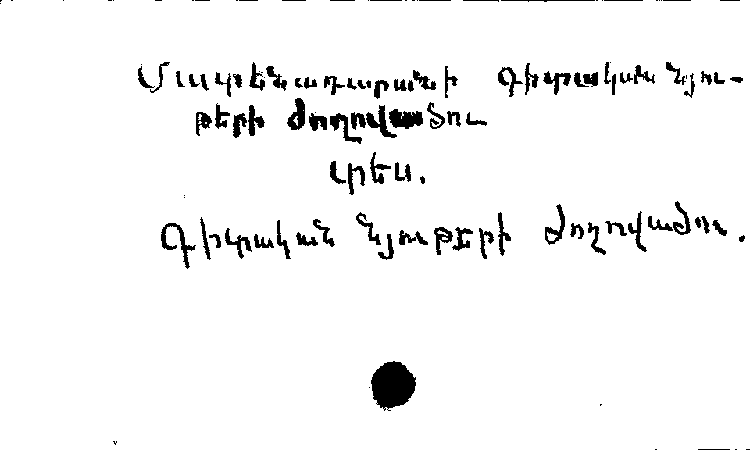 Մատենադարանի գիտական նյու-
թերի ժողովածու
տես.
Գիտական նյութերի ժողովածու.